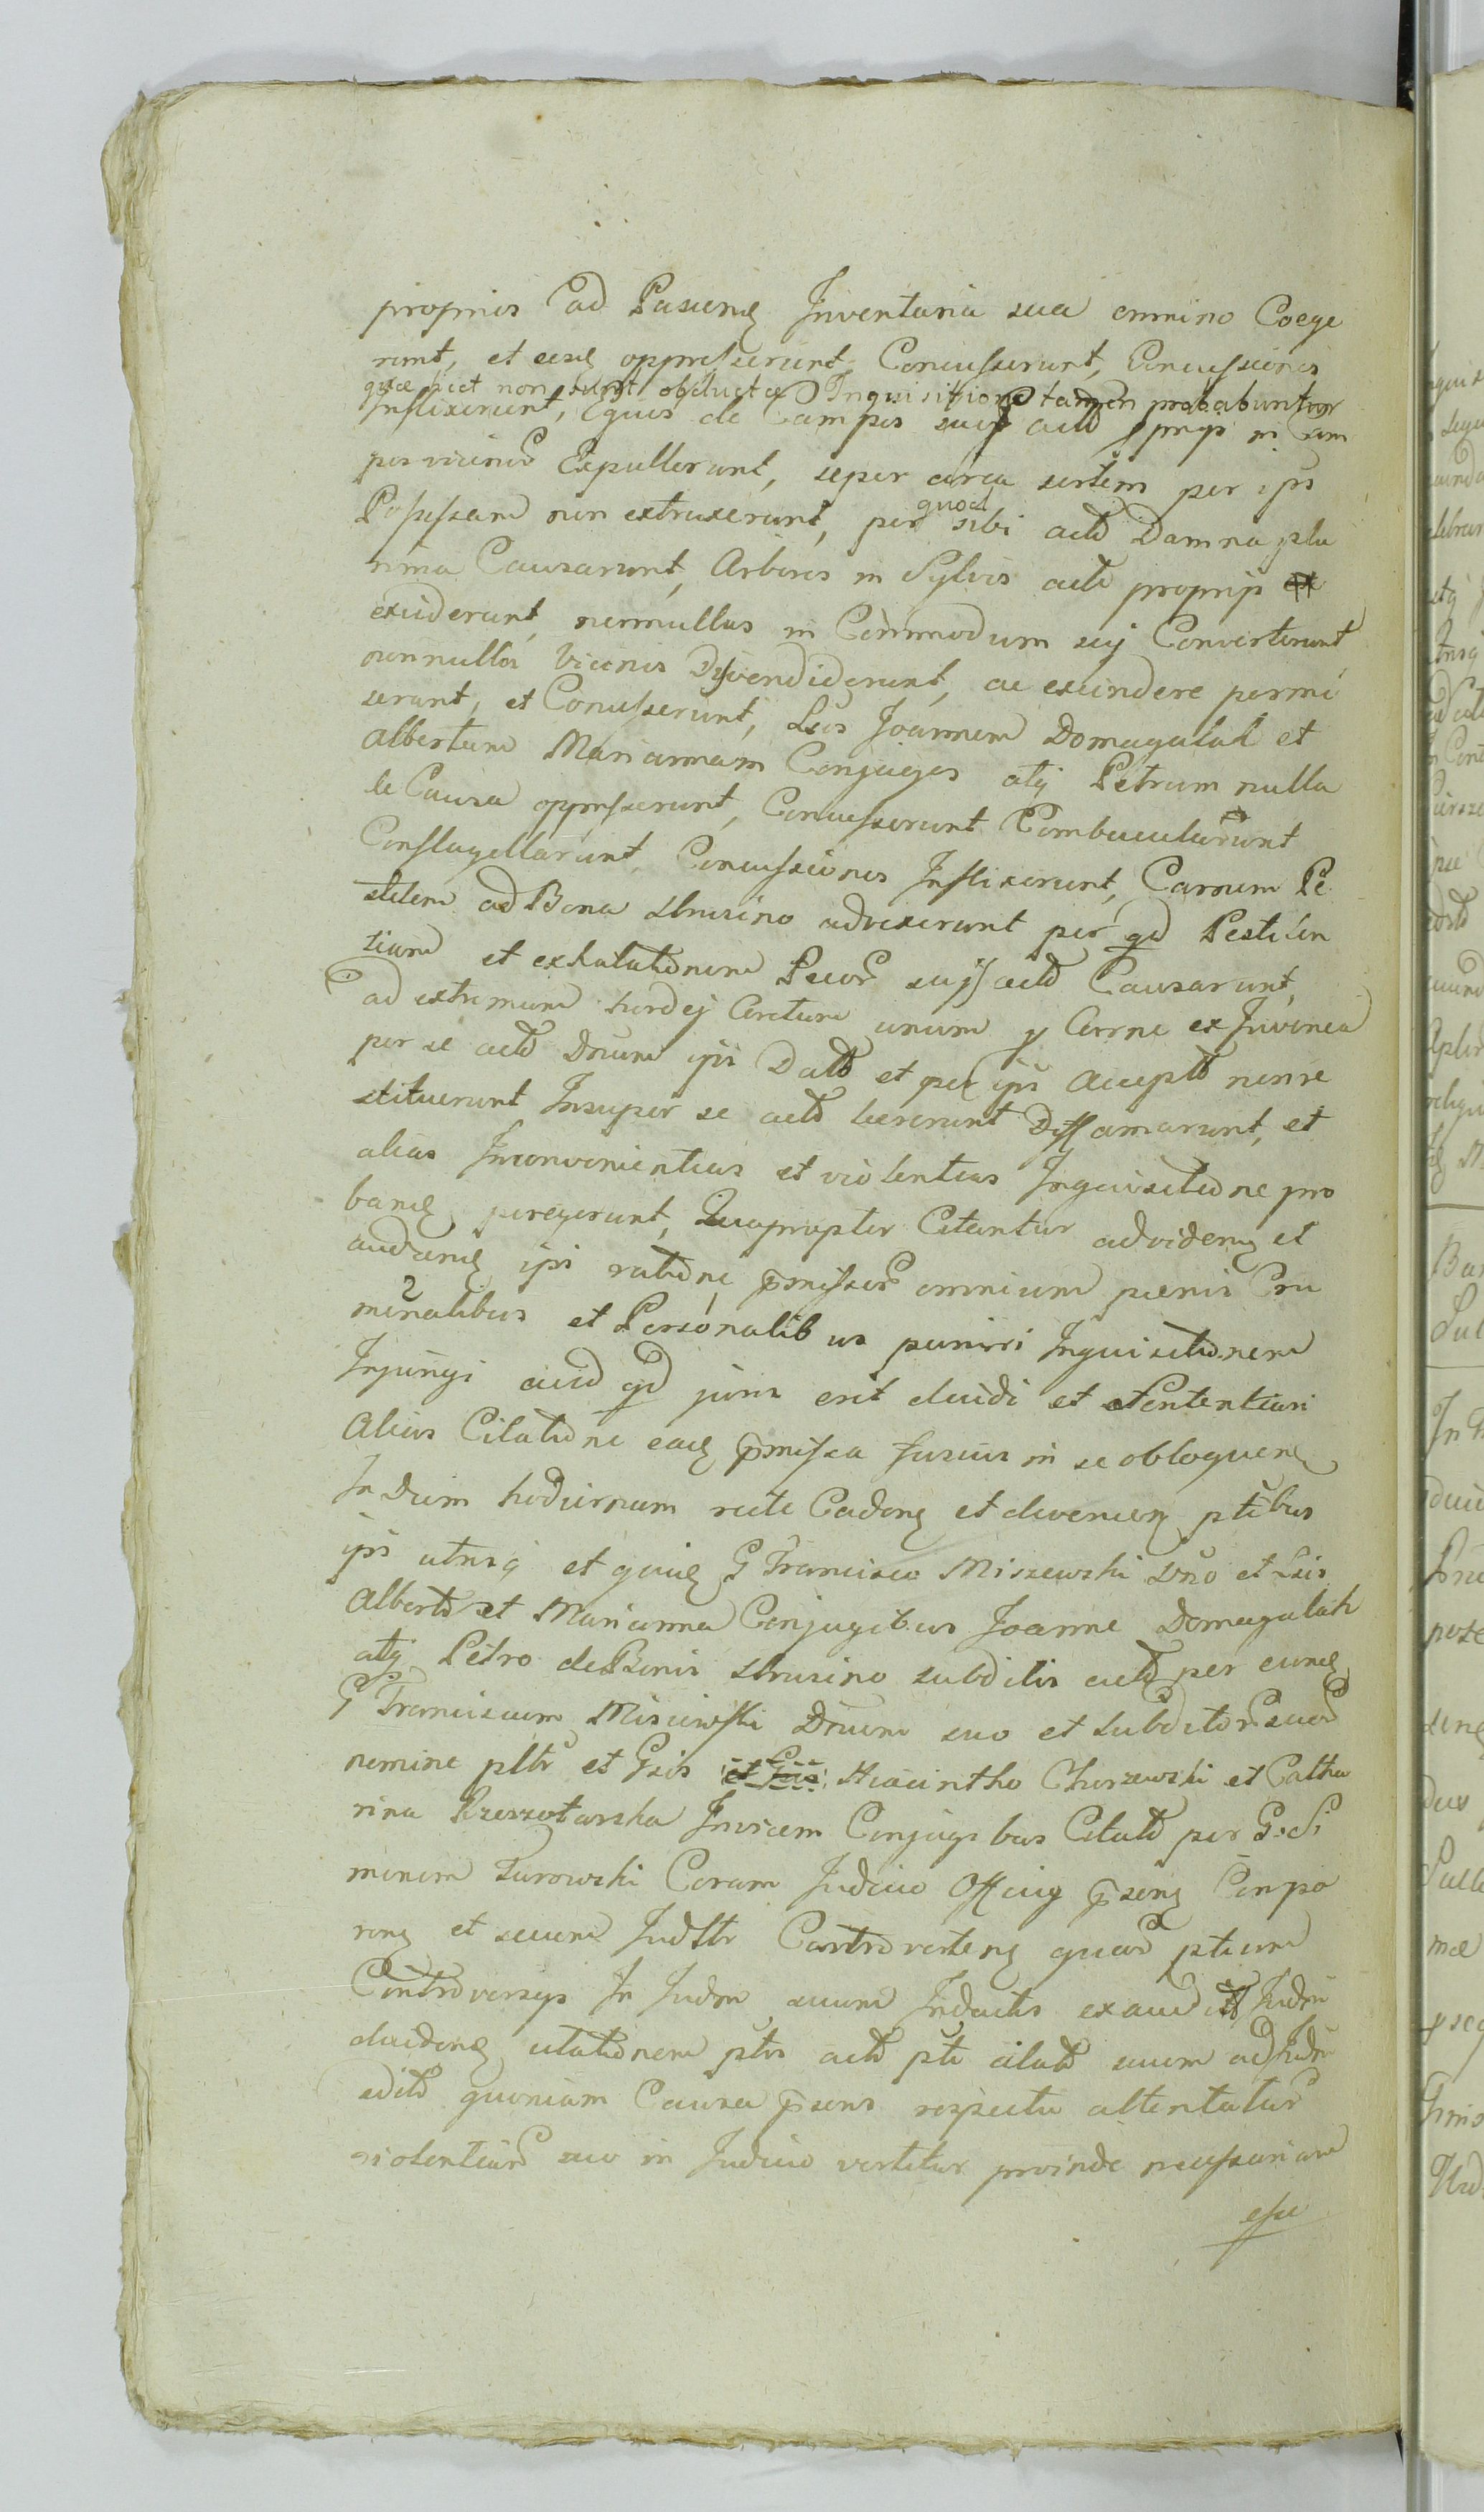 proprios ad Pascend Inventaria sua omnino Coege
rint, et eosd oppresserunt, Concusserunt, Concussiones
quae licet non sunt obducta Inquisitione tamen probabuntur
Inflixerunt, Equos de Campis suis actd pprijs in Cam
pos vicinos Expullerunt, sepes circa sortem per ips
Possessam non extruxerunt, per quod sibi actd Damna plu
rima Causarunt, Arbores in Sylvis actd proprijs
exciderunt, nonnullas in Commodum suij Converterunt
nonnullas Vicinis Disvendiderunt, ac excindere permi
serunt, et Concusserunt, Lbs Joannem Domagalak et
Albertum Mariannam Conjuges atq Petrum nulla
de Causa oppresserunt, Concusserunt Combaculârunt
Conflagellarunt, Concussiones Inflixerunt, Carnem Pe
stilem ad Bona Strusino advexerunt per qd Pestilen
tiam et exhalatonem Pecor suis actd Causarunt,
ad extremum hordej Coretum unum p Carne ex Juvenca
per se actd Dnum ips Datd et per ips acceptd non re
stituerunt Insuper se actd laeserunt Diffamarunt, et
alias Inconvenientias et violentias Inquisitione pro
band peregerunt, Quapropter Citantur ad videnq et
audienq ips ratione pmissor omnium paenis Cri
minalibus et Personalibus puniri Inquisitionem
Injungi aliud qd juris erit decidi et sententiari
Alias Citatone ead pmissa fusius in se obloquen
In Diem hodiernum recte Caden et devenien ptibus
ips utrisq et quid G Francisco Miszewski Dno et Lbis
Alberto et Marianna Conjugibus Joanne Domagalak
atq Petro de Bonis Strusino subditis actd per eund
G Franciscum Misiewski Dnum suo et subditor suor
nomine pltr et Gsis et Gsis Hiacintho Chorzewski et Catha
rina Rzeszotarska Invicem Conjugibus Citatd per G: Si
monem Turowski Coram Judicio Officiq psenq Conpa
renq et secum Judltr Controverteng quar ptium
Controversys In Judm suum Inductis exauditd Judm
decidend citatonem ptis actd pti citatd suum ad Judm
editd quoniam Causa psens respectu attentatur
violentiar suo in Judicio vertitur proinde necessariam
esse